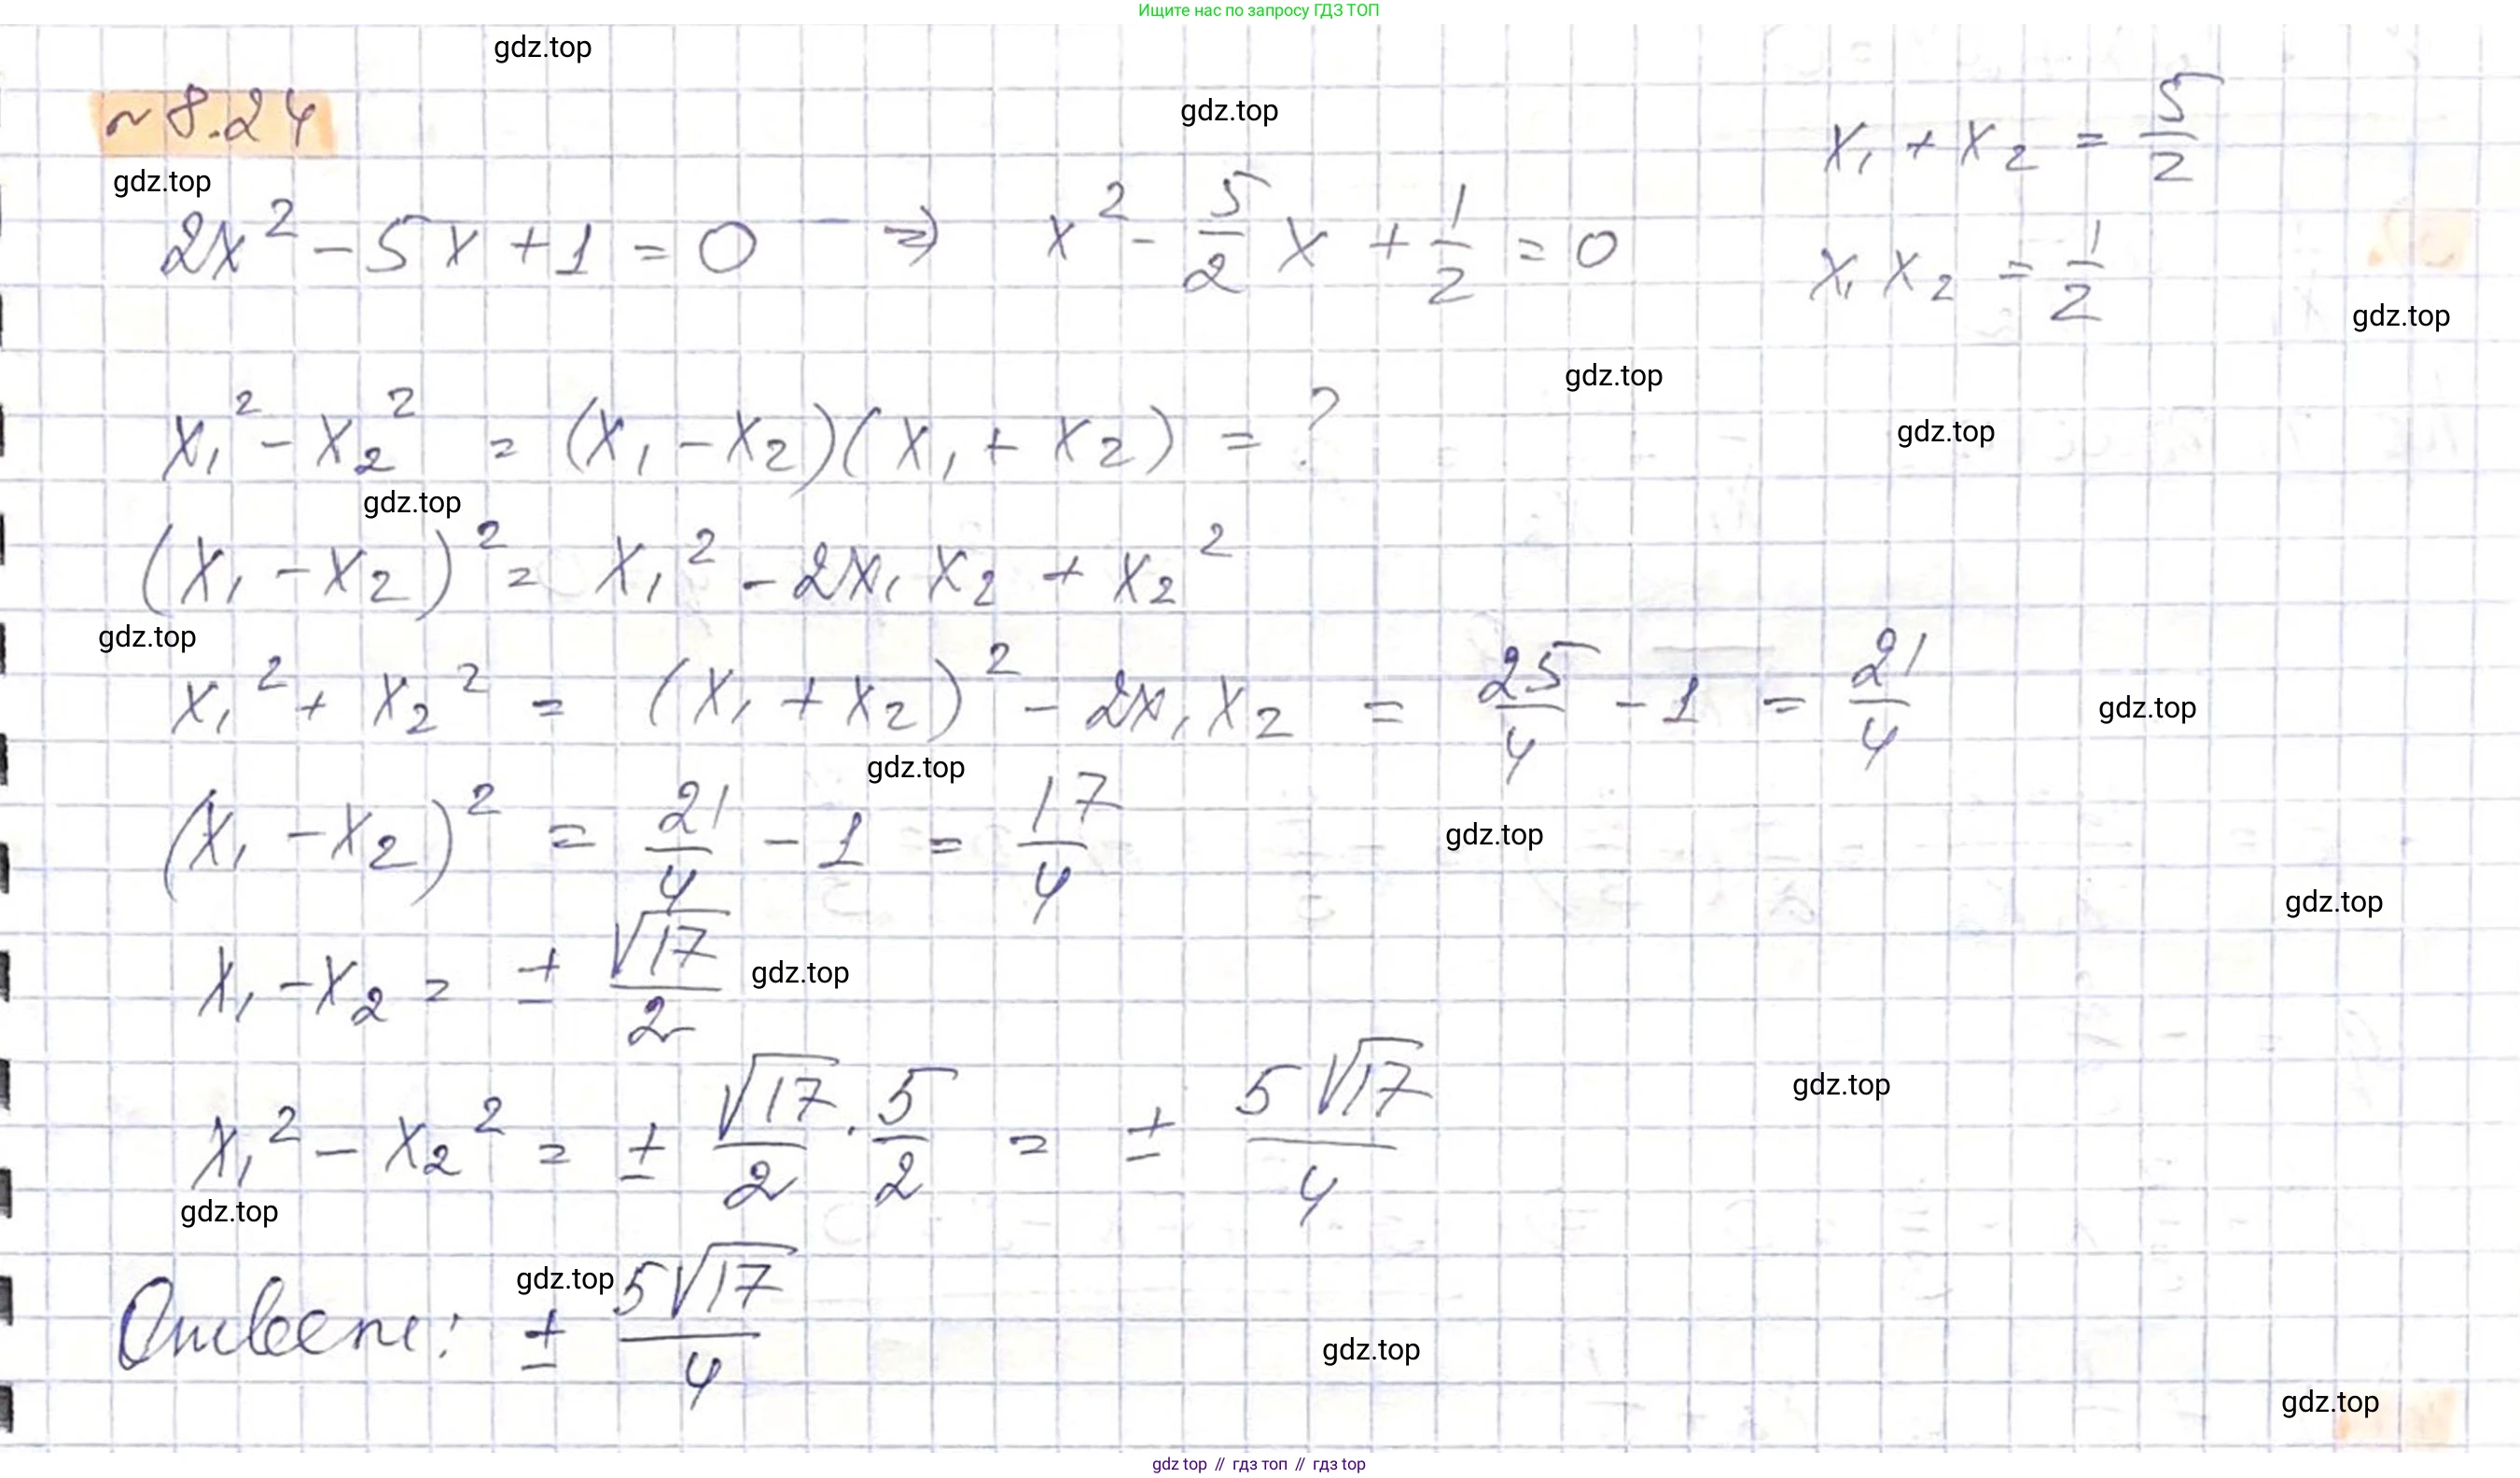 Ищите нас по запросу ГДЗ ТОП
gdz.top
№ 8.24
gdz.top
x₁ + x₂ = 5/2
gdz.top
2x² - 5x + 1 = 0 ⇒ x² - 5/2 x + 1/2 = 0
x₁ x₂ = 1/2
gdz.top
gdz.top
x₁² - x₂² = (x₁ - x₂)(x₁ + x₂) = ?
gdz.top
gdz.top
(x₁ - x₂)² = x₁² - 2x₁x₂ + x₂²
gdz.top
x₁² + x₂² = (x₁ + x₂)² - 2x₁x₂ = 25/4 - 1 = 21/4
gdz.top
gdz.top
(x₁ - x₂)² = 21/4 - 1 = 17/4
gdz.top
gdz.top
x₁ - x₂ = ± √17/2
gdz.top
gdz.top
x₁² - x₂² = ± √17/2 · 5/2 = ± 5√17/4
gdz.top
gdz.top
Ответ: ± 5√17/4
gdz.top
gdz.top
gdz top // гдз топ // гдз top